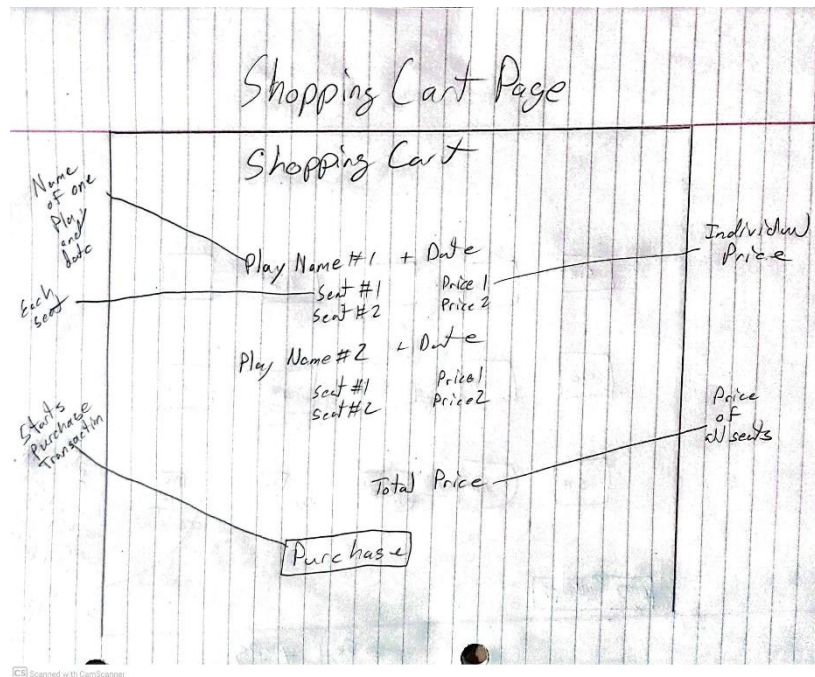 Shopping Cart Page
Shopping Cart
Name
of one
Play
and
date
Play Name #1 + Date
Individual
Price
Each
seat
Seat #1 Price 1
Seat #2 Price 2
Play Name #2 + Date
Seat #1 Price 1
Seat #2 Price 2
Starts
Purchase
Transactin
Price
of
all seats
Total Price
Purchase
CS Scanned with CamScanner